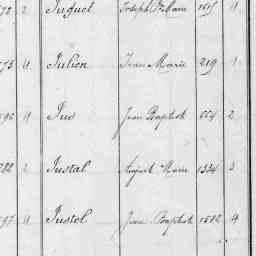 2 Juguet Joseph Marie 1
4 Julien Jean Marie 219 1
4 Juo Jean Baptiste 554 2
2 Justal August Marie 1334 3
4 Justel Jean Baptiste 1502 4